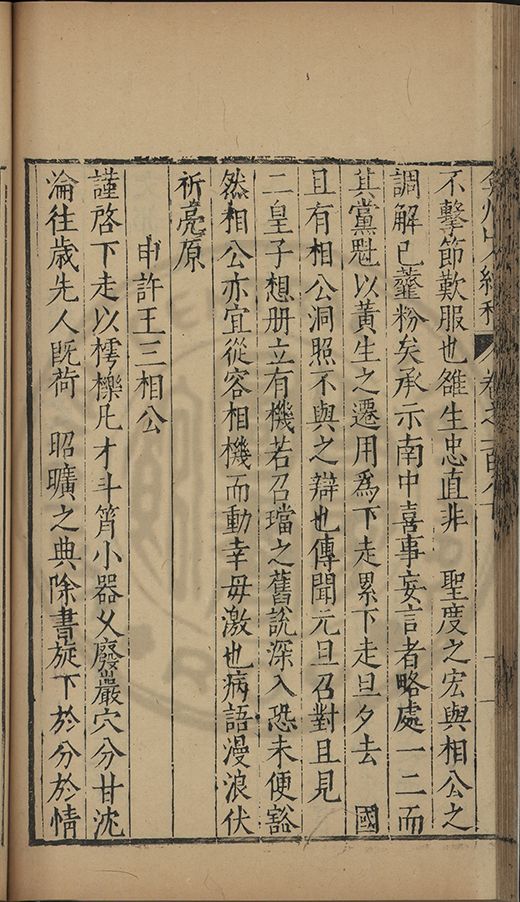 弇州史續稿 卷之一百八十
不擊節歎服也雒生忠直非　聖度之宏與相公之
調解已虀粉矣承示南中喜事妄言者略處一二而
其黨魁以黃生之遷用爲下走累下走旦夕去　國
且有相公洞照不與之辯也傳聞元旦召對且見
二皇子想册立有機若召璫之舊說深入恐未便豁
然相公亦宜從容相機而動幸毋激也病語漫浪伏
祈亮原
申許王三相公
謹啓下走以樗櫟凡才斗筲小器乂廢巖穴分甘沈
淪往歲先人旣荷　昭曠之典除書旋下於分於情